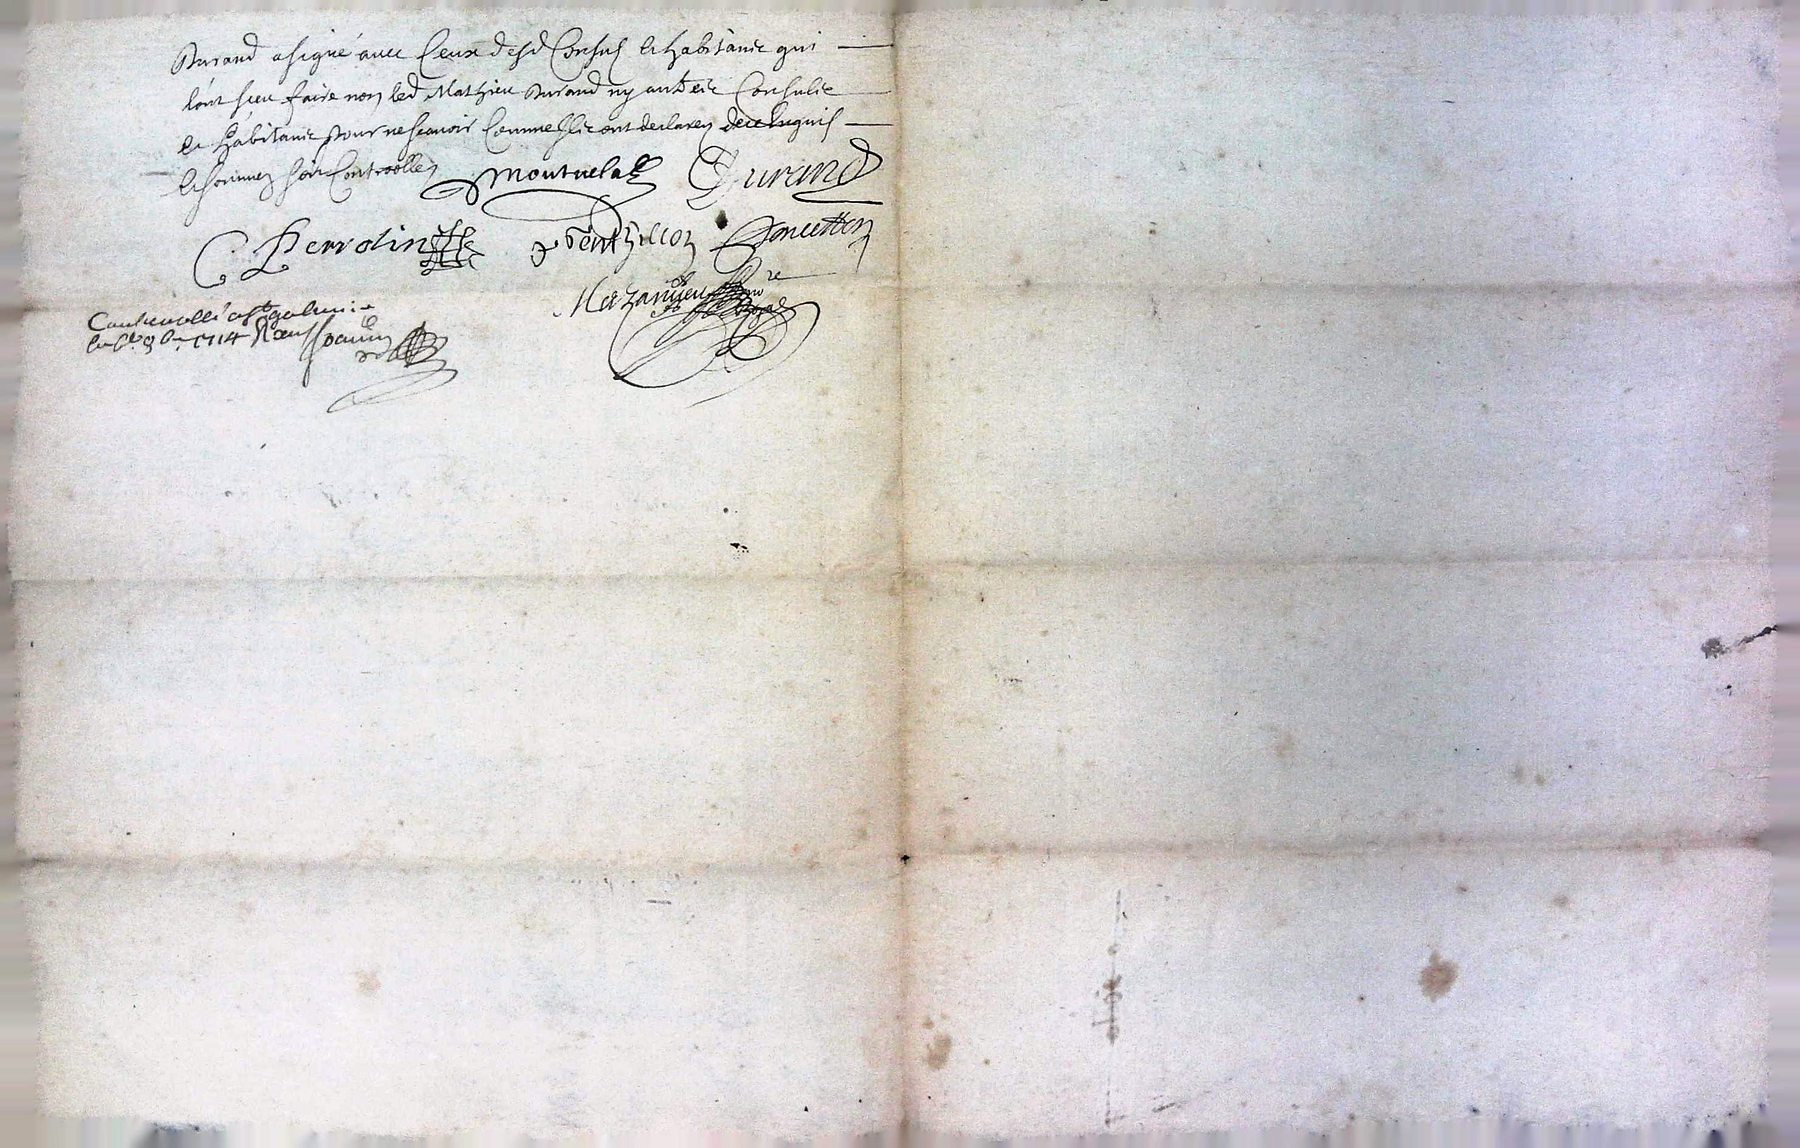 Durand a signé avec ceux desd Consuls et habitants qui
lont sceu faire non led Mathieu Durand ny autres Consuls
et habitants pour ne scavoir comme ils ont declarez de ce enquis
et sommez soit controollez montuelad Durand
C Perrolin de Ponthillon Poncetton
Mazanieu nore
Controollé a St galmier
le 9 bre 1714 Receu